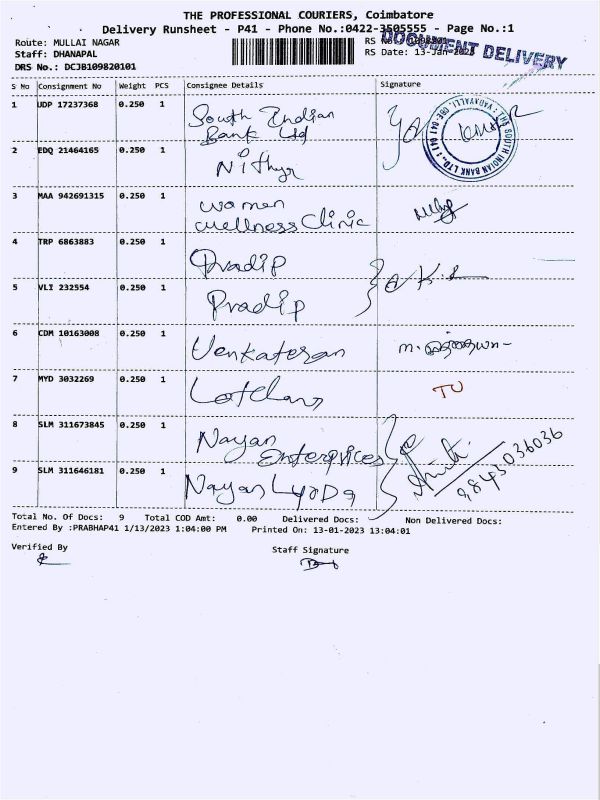 THE PROFESSIONAL COURIERS, Coimbatore
Delivery Runsheet - P41 - Phone No.:0422-3505555 - Page No.:1
Route: MULLAI NAGAR
RS No.:
DOCUMENT DELIVERY
Staff: DHANAPAL
RS Date: 13-Jan-2023
DRS No.: DCJB109820101
S No Consignment No Weight PCS Consignee Details Signature
1 UDP 17237368 0.250 1 South Indian
Bank Ltd
THE SOUTH INDIAN BANK LTD., VADAVALLI, CBE-641 041
2 EDQ 21464165 0.250 1 Nithya
3 MAA 942691315 0.250 1 women
wellness Clinic
4 TRP 6863883 0.250 1 Pradip
5 VLI 232554 0.250 1 Pradip
6 CDM 10163008 0.250 1 Venkatesan
7 MYD 3032269 0.250 1
8 SLM 311673845 0.250 1 Nayan
Enterprices
9 SLM 311646181 0.250 1 Nayan
9845036036
Total No. Of Docs: 9 Total COD Amt: 0.00 Delivered Docs: Non Delivered Docs:
Entered By :PRABHAP41 1/13/2023 1:04:00 PM Printed On: 13-01-2023 13:04:01
Verified By
Staff Signature